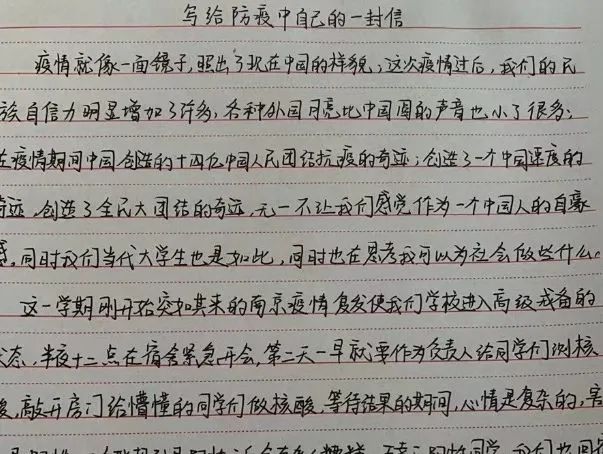 写给防疫中自己的一封信
疫情就像一面镜子,照出了现在中国的样貌,这次疫情过后,我们的民
族自信力明显增加了许多,各种外国月亮比中国圆的声音也小了很多;
在疫情期间中国创造的十四亿中国人民团结抗疫的奇迹;创造了一个中国速度的
奇迹,创造了全民大团结的奇迹,无一不让我们感觉作为一个中国人的自豪
感,同时我们当代大学生也是如此,同时也在思考我可以为社会做些什么。
这一学期刚开始突如其来的南京疫情复发使我们学校进入高级戒备的
状态,半夜十二点在宿舍紧急开会,第二天一早就要作为负责人给同学们测核
酸,敲开房门给懵懂的同学们做核酸,等待结果的期间,心情是复杂的,害